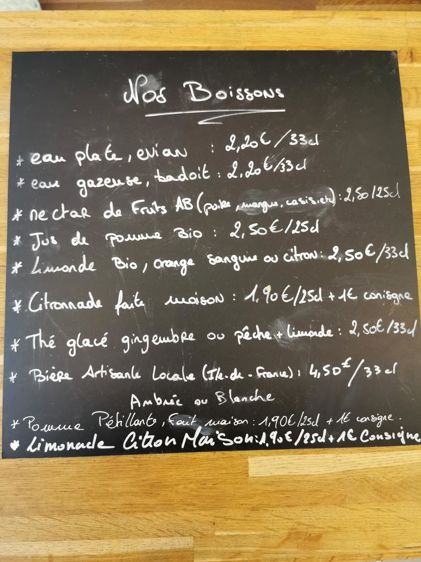 Nos Boissons
* eau plate, evian : 2,20€/33cl
* eau gazeuse, badoit : 2,20€/33cl
* nectar de Fruits AB (poire, mangue, cassis, etc) : 2,50/25cl
* Jus de pomme Bio : 2,50€/25cl
* Limonde Bio, orange sanguine ou citron : 2,50€/33cl
* Citronnade faite maison : 1,90€/25cl + 1€ consigne
* Thé glacé gingembre ou pêche + limonde : 2,50€/33cl
* Bière Artisanle Locale (Ile-de-France) : 4,50€/33cl
Ambrée ou Blanche
* Pomme Pétillante, Fait maison : 1,90€/25cl + 1€ consigne.
* Limonade Citron Maison : 1,90€/25cl + 1€ Consigne